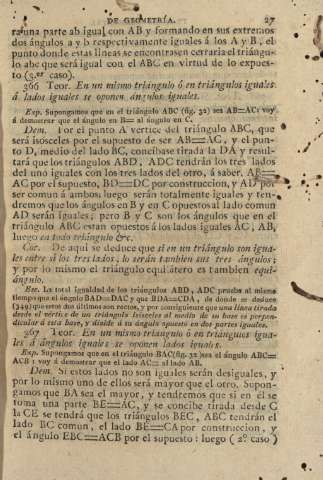 DE GEOMETRÍA. 27
ra una parte ab igual con AB y formando en sus extremos
dos ángulos a y b respectivamente iguales á los A y B, el
punto donde estas líneas se encontrasen cerraria el triángu-
lo abc que será igual con el ABC en virtud de lo expues-
to (3.er caso).
266 Teor. En un mismo triángulo ó en triángulos iguales
á lados iguales se oponen ángulos iguales.
Exp. Supongamos que en el triángulo ABC (fig. 32) sea AB=AC: voy
á demostrar que el ángulo en B= al ángulo en C.
Dem. Por el punto A vertice del triángulo ABC, que
será isósceles por el supuesto de ser AB=AC, y el pun-
to D, medio del lado BC, concibase tirada la DA y resul-
tará que los triángulos ABD, ADC tendrán los tres lados
del uno iguales con los tres lados del otro, á saber, AB=
AC por el supuesto, BD=DC por construccion, y AD por
ser comun á ambos, luego serán totalmente iguales y ten-
dremos que los ángulos en B y en C opuestos al lado comun
AD serán iguales; pero B y C son los ángulos que en el
triángulo ABC estan opuestos á los lados iguales AC, AB,
luego en todo triángulo &c.
Cor. De aquí se deduce que si en un triángulo son igua-
les entre sí los tres lados, lo serán tambien sus tres ángulos;
y por lo mismo el triángulo equilátero es tambien equi-
ángulo.
Esc. La total igualdad de los triángulos ABD, ADC prueba al mismo
tiempo que el ángulo BAD=DAC y que BDA=CDA, de donde se deduce
(349) que estos dos últimos son rectos, y por consiguiente que una línea tirada
desde el vértice de un triángulo isósceles al medio de su base es perpen-
dicular á esta base, y divide á su ángulo opuesto en dos partes iguales.
267 Teor. En un mismo triángulo ó en triángulos igua-
les á ángulos iguales se oponen lados iguales.
Exp. Supongamos que en el triángulo BAC (fig. 32) sea el ángulo ABC=
ACB: voy á demostrar que el lado AC= al lado AB.
Dem. Si estos lados no son iguales serán desiguales, y
por lo mismo uno de ellos será mayor que el otro. Supon-
gamos que BA sea el mayor, y tendremos que si en él se
toma una parte BE=AC, y se concibe tirada desde C
la CE se tendrá que los triángulos BEC, ABC tendrán el
lado BC comun, el lado BE=CA por construccion, y
el ángulo EBC=ACB por el supuesto: luego (2º caso)